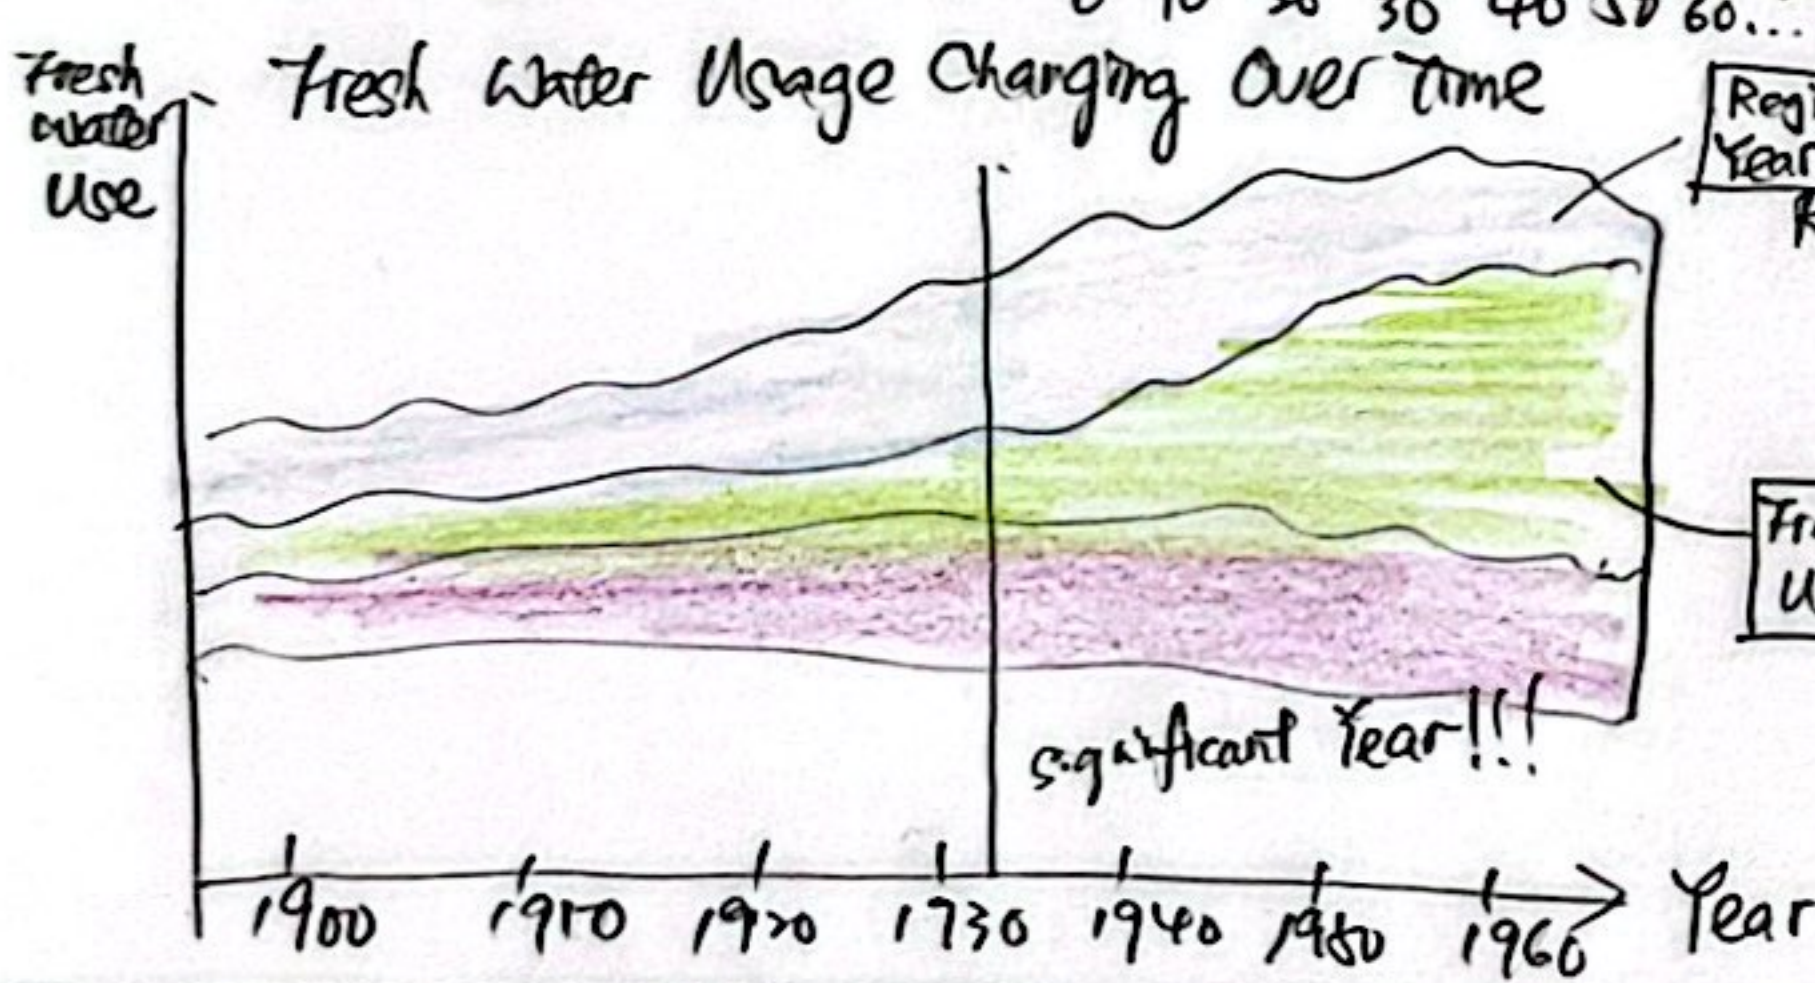 10 20 30 40 50 60...
Fresh
water
Use
Fresh Water Usage Changing Over Time
Year
significant Year!!!
1900 1910 1920 1930 1940 1950 1960
Year